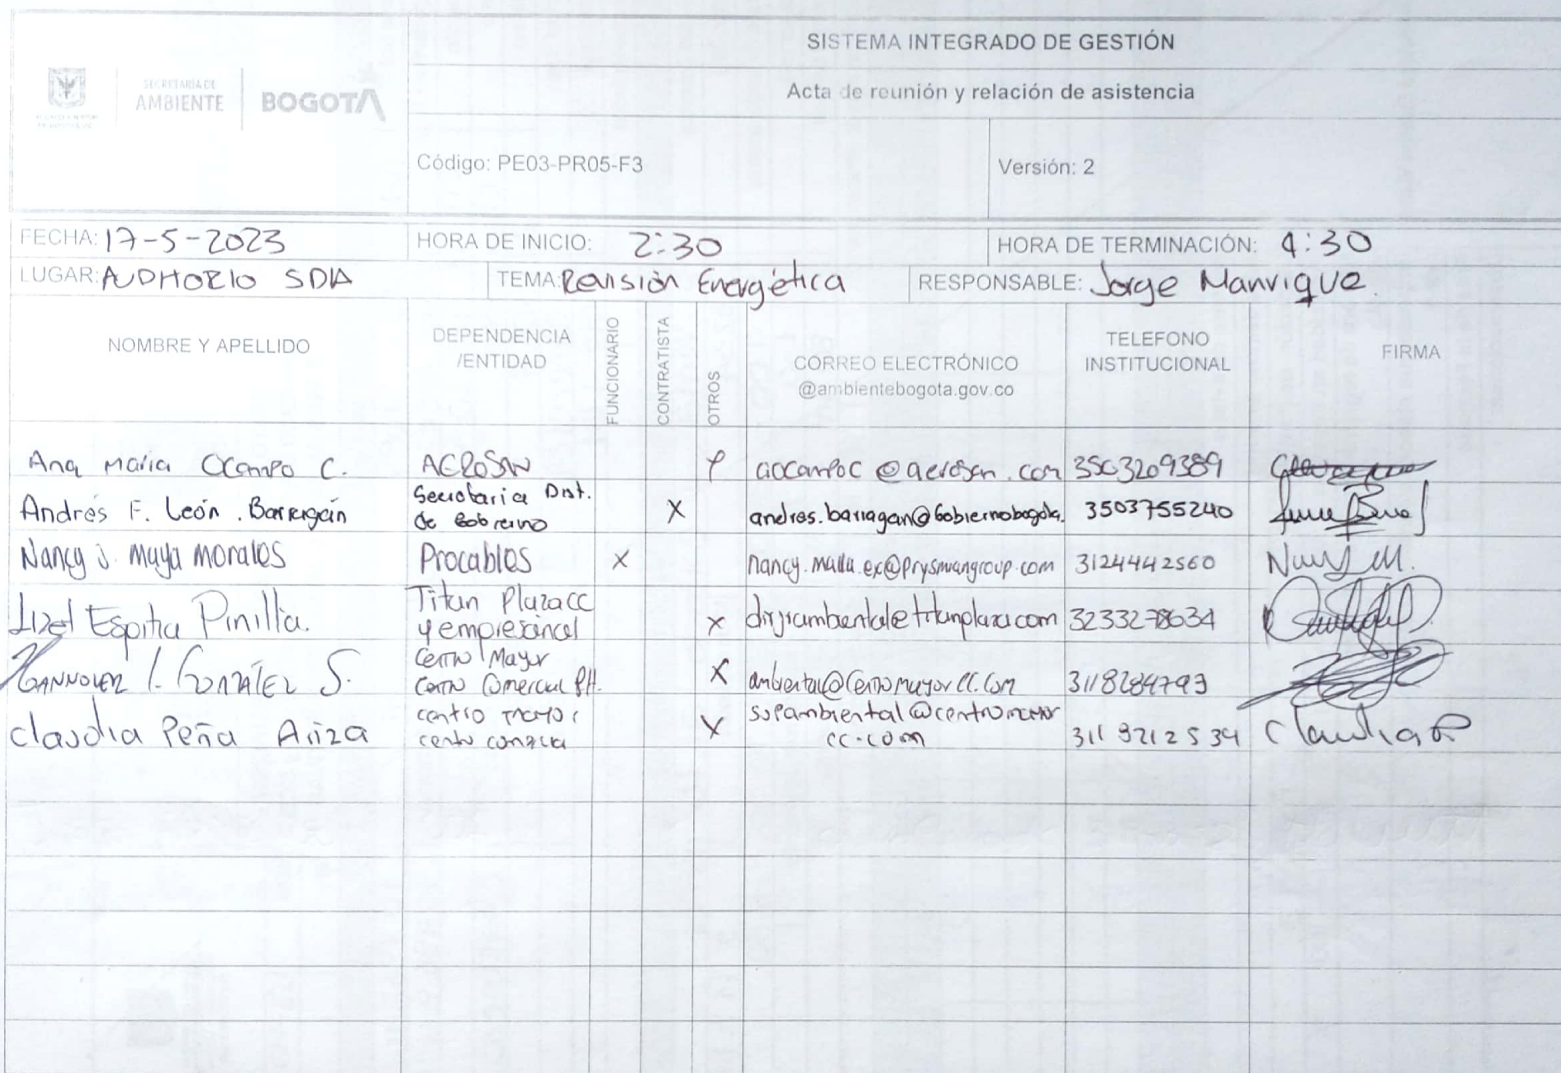 SISTEMA INTEGRADO DE GESTIÓN
SECRETARÍA DE
AMBIENTE
BOGOTÁ
Acta de reunión y relación de asistencia
Código: PE03-PR05-F3
Versión: 2
FECHA: 17-5-2023
HORA DE INICIO: 2:30
HORA DE TERMINACIÓN: 4:30
LUGAR: AUDITORIO SDA
TEMA: Revisión Energética
RESPONSABLE: Jorge Manrique.
NOMBRE Y APELLIDO
DEPENDENCIA
/ENTIDAD
FUNCIONARIO
CONTRATISTA
OTROS
CORREO ELECTRÓNICO
@ambientebogota.gov.co
TELEFONO
INSTITUCIONAL
FIRMA
Ana Maria Ocampo C.
aocampoc@aerosan.com 3503209389
Andrés F. León. Barragán
Secretaria Dist.
de Gobierno
X
andres.barragan@Gobiernobogota.
3503755240
Nancy J. Maya Morales
Procables
X
3124442560
Nancy M.
Lizet Espitia Pinilla.
Titan Plaza CC
X
Hannover L. González S.
Centro Mayor
Centro Comercial P.H.
X
ambiental@CentromayorCC.Com
Claudia Peña Ariza
centro mayor
X
supambiental@centromayor
cc.com
311 8212534
Claudia P